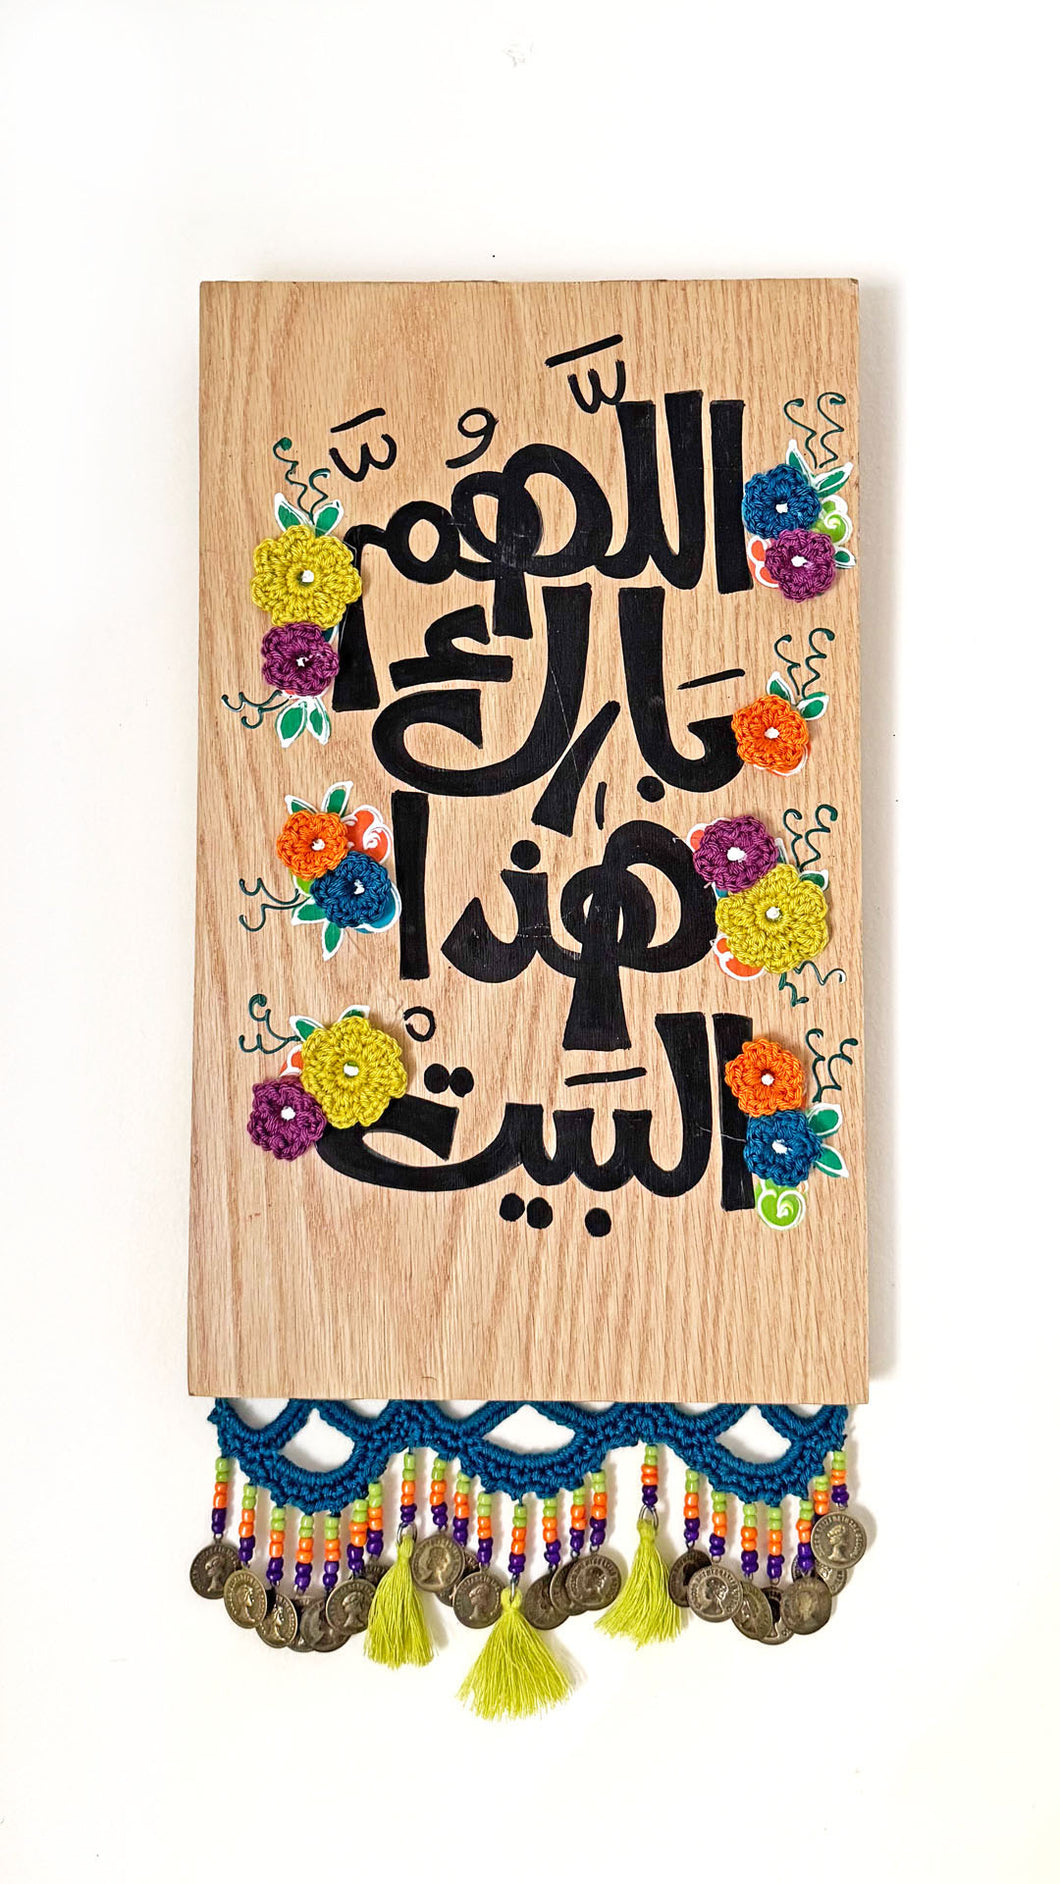 اللَّهُمَّ
بَارِك
هٰذا
البَيتْ